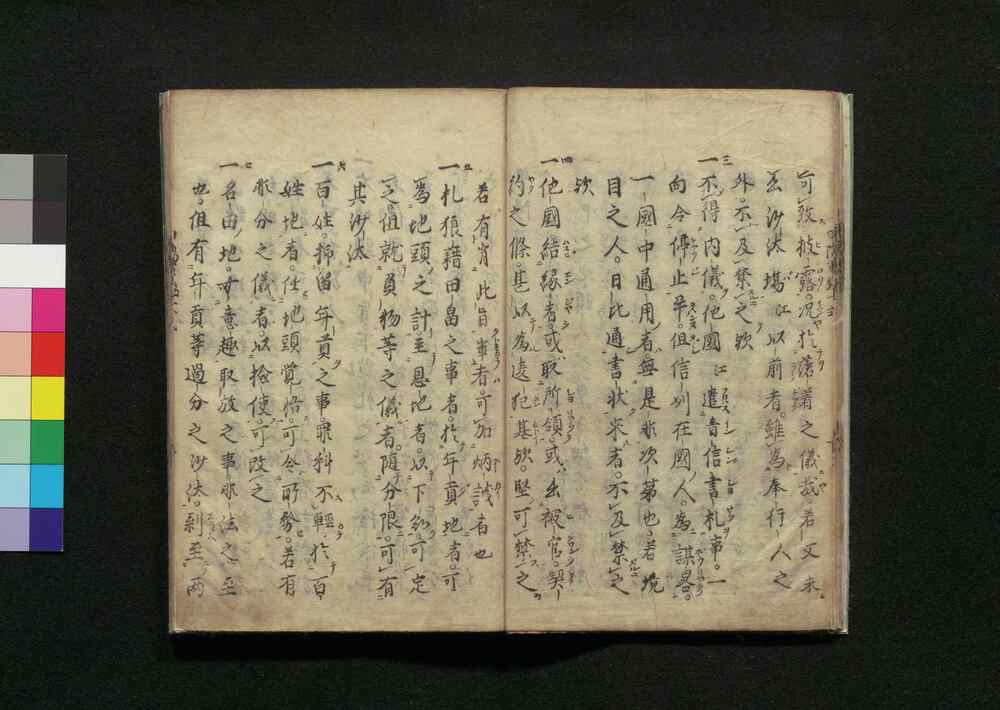 可致披露。况於落著之儀哉。若文未
出沙汰場江以前者。雖為奉行人之
外。不及禁之歟
一不得内儀。他國江遣音信書札事。一
向令停止畢。但信州在國人。為謀略。
一國中通用者。無是非次第也。若境
目之人。日比通書狀来者。不及禁之
歟
一他國結縁者。或取所領。或出被官。契
約之條。甚以為違犯基歟。堅可禁之
若有背此旨輩者。可加炳誡者也
一札狼藉田畠之事者。於年貢地者。可
為地頭之計。至恩地者。以下知可定
之。但就負物等之儀者。随分限。可有
其沙汰
一百姓。抑留年貢之事。罪科不輕。於百
姓地者。任地頭覚悟。可令所務。若有
非分之儀者。以検使。可改之
一名田地。無意趣取放之事。非法之至
也。但有年貢等過分之沙汰。剰至両
三
四
五
六
七